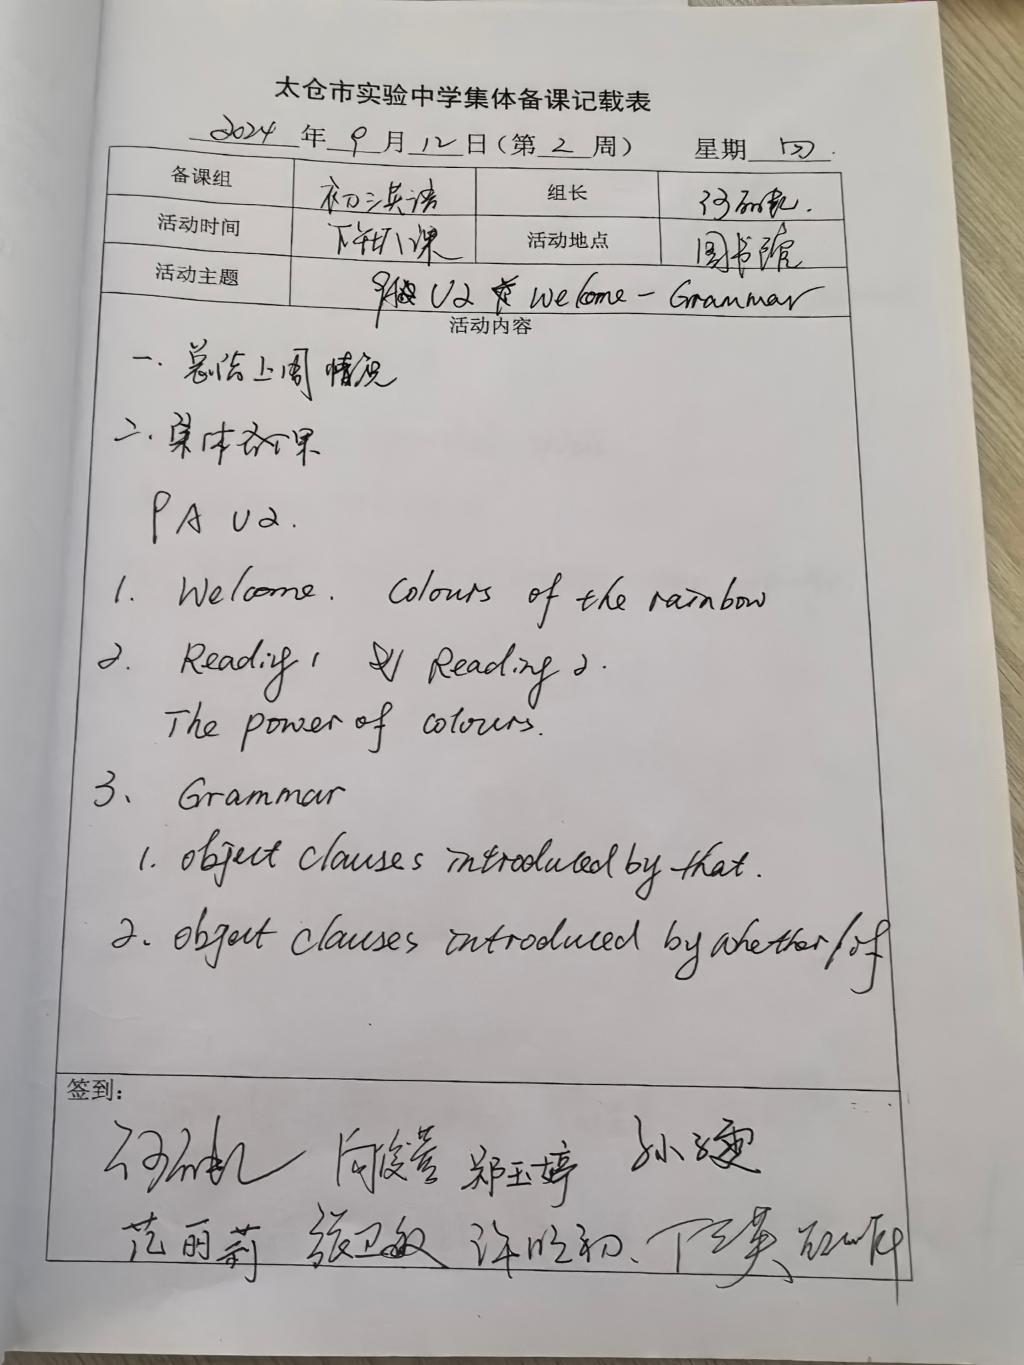 太仓市实验中学集体备课记载表
2024年9月12日(第2周) 星期四.
备课组 初三英语 组长
活动时间 下午 课 活动地点 图书馆
活动主题 9A U2 Welcome - Grammar
活动内容
一. 总结上周情况
二. 集体备课
9A U2.
1. Welcome. Colours of the rainbow
2. Reading 1 Reading 2.
The power of colours.
3、 Grammar
1. object clauses introduced by that.
2. object clauses introduced by whether/if
签到:
郑玉婷
范丽莉 张卫敏